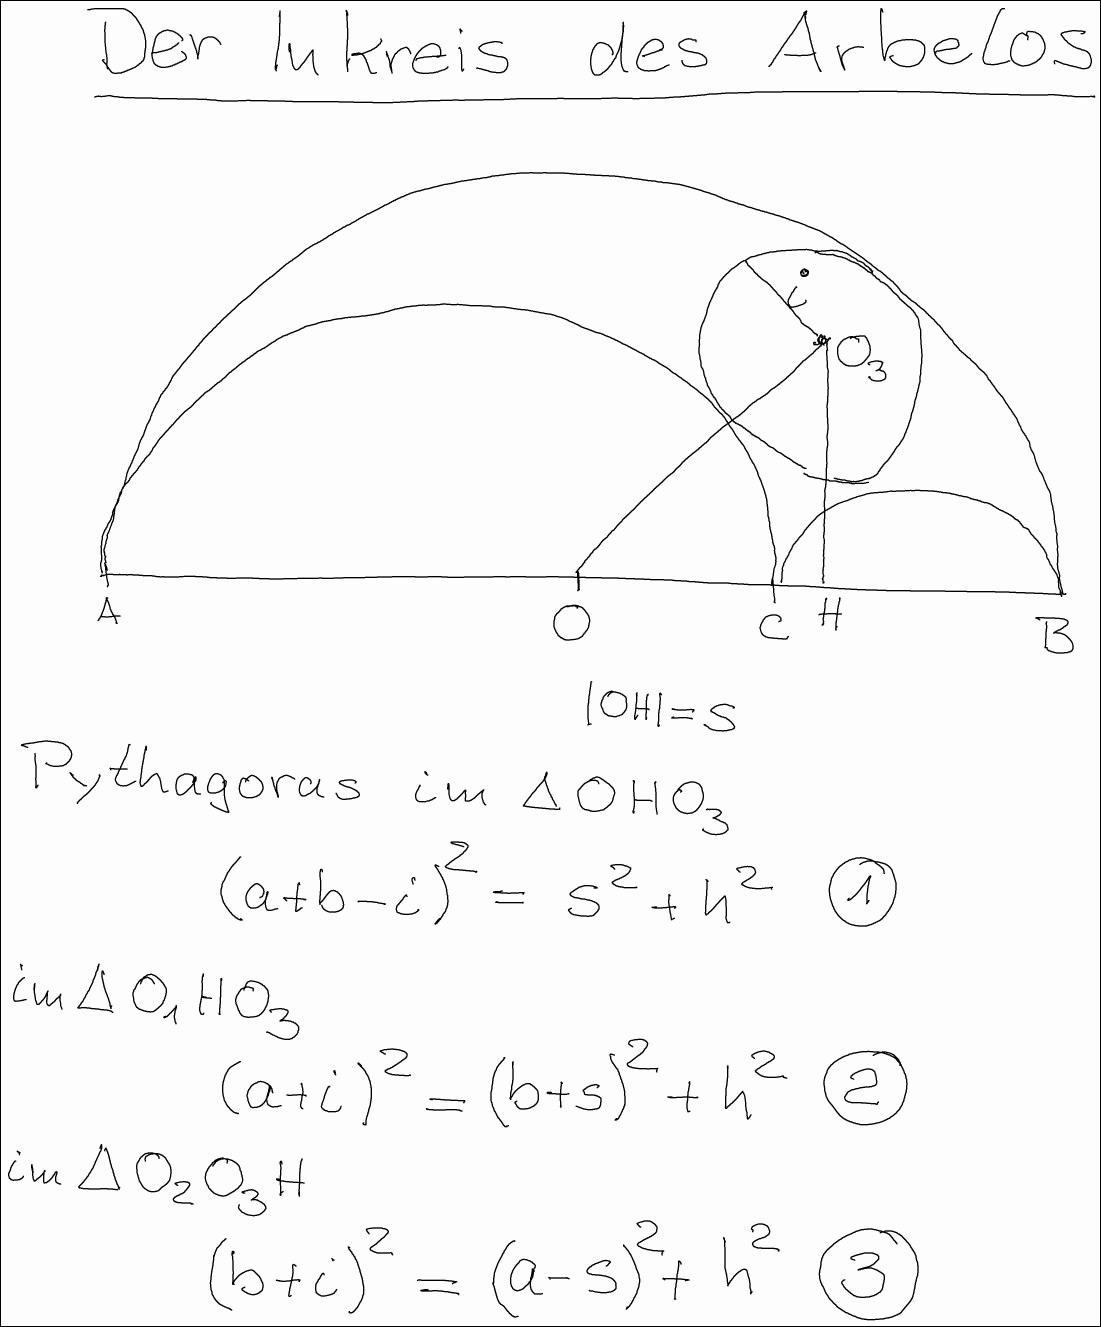 Der Inkreis des Arbelos
i
O₃
A O C H B
|OH|=s
Pythagoras im △OHO₃
(a+b-i)² = s²+h² ①
im △O₁HO₃
(a+i)² = (b+s)²+h² ②
im △O₂O₃H
(b+i)² = (a-s)²+h² ③